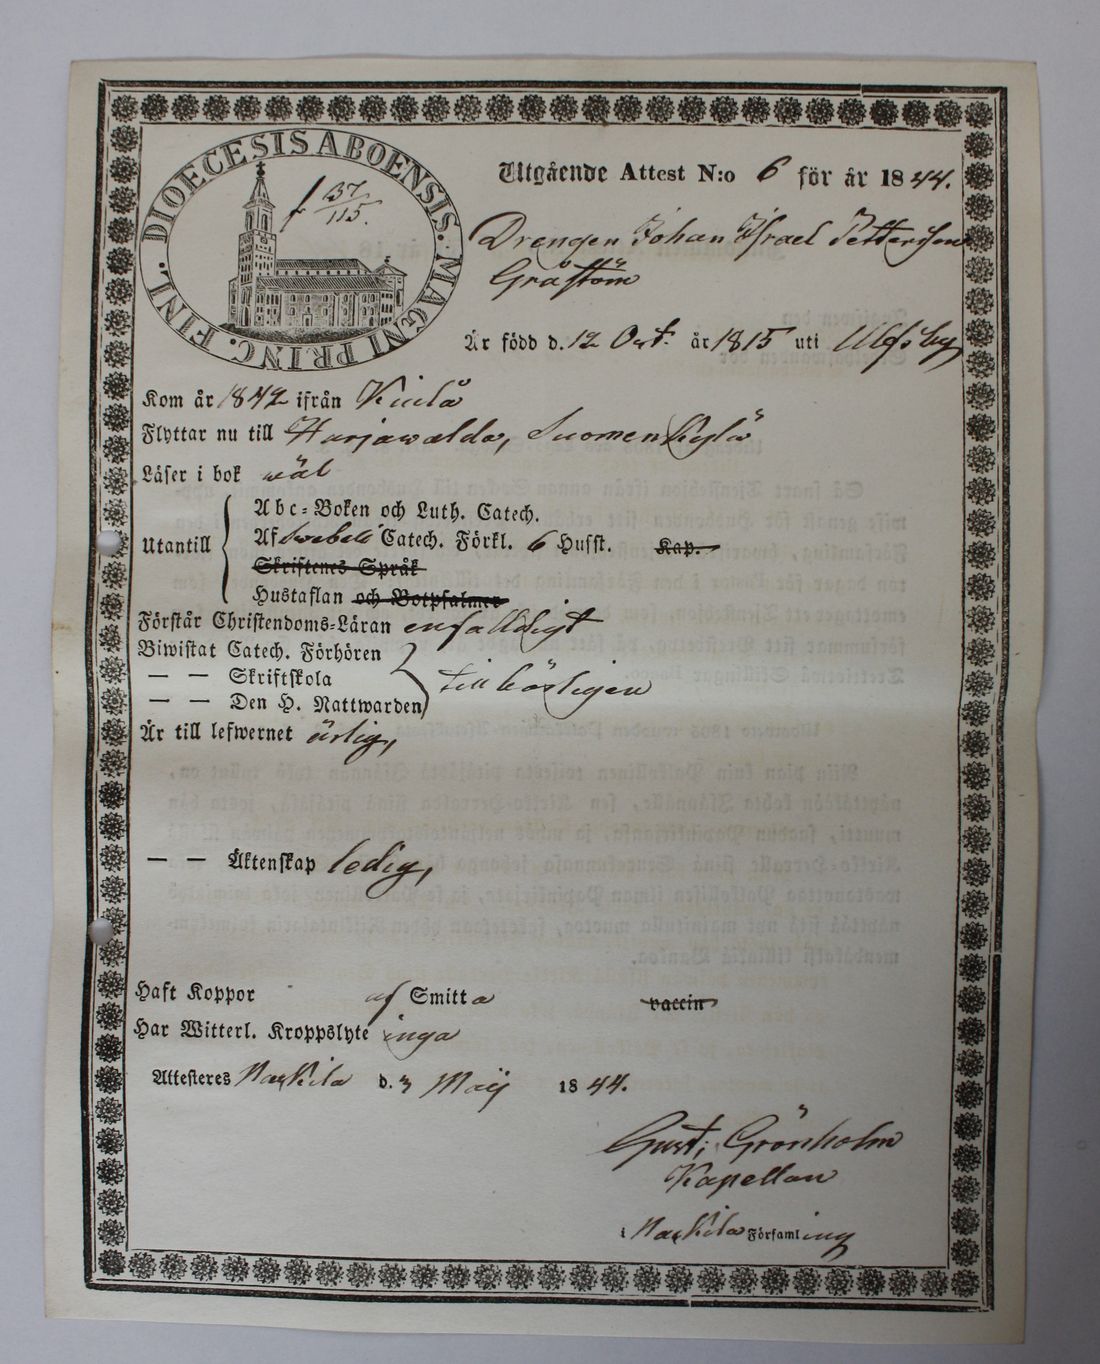 DIOECESIS ABOENSIS. MAGNI PRINC. FINL.
f 137/115.
Utgående Attest N:o 6 för år 1844.
Drengen Johan Israel Pettersson
Gråström
Är född d. 12 Oct. år 1815 uti Ulfsby
Kom år 1842 ifrån Kiula
Flyttar nu till Harjawalda, Suomenkylä
Läser i bok wäl
Utantill
Abc-Boken och Luth. Catech.
Af Swebeli Catech. Förkl. 6 Hufst. Kap.
Skriftenes Språk
Hustaflan och Botpsalmer
Förstår Christendoms-Läran enfaldigt
Biwistat Catech. Förhören
— — Skriftskola
— — Den H. Nattwarden
tillbörligen
Är till lefwernet ärlig,
— — Äktenskap ledig,
Haft Koppor af Smitta vaccin
Har Witterl. Kroppslyte inga
Attesteres Nackila d. 3 Maij 1844.
Gust: Grönholm
Kapellan
i Nackila Församling